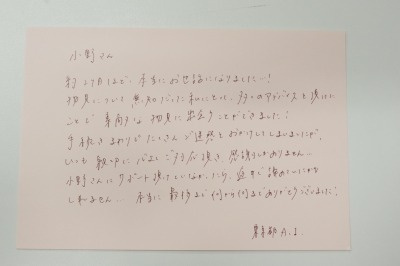 小野さん
約2ヶ月ほど、本当にお世話になりました!
物見について無知だった私にとって、多くのアドバイスを頂けた
ことで素敵な物見に出会うことができました!
手続きまわりでたくさんご迷惑をおかけしてしまいましたが、
いつも親切に対応頂き、感謝しかありません…
小野さんにサポート頂けていなかったら、途中で諦めていたかも
しれません… 本当に最後まで何から何までありがとうございました!
東京都 A.I.